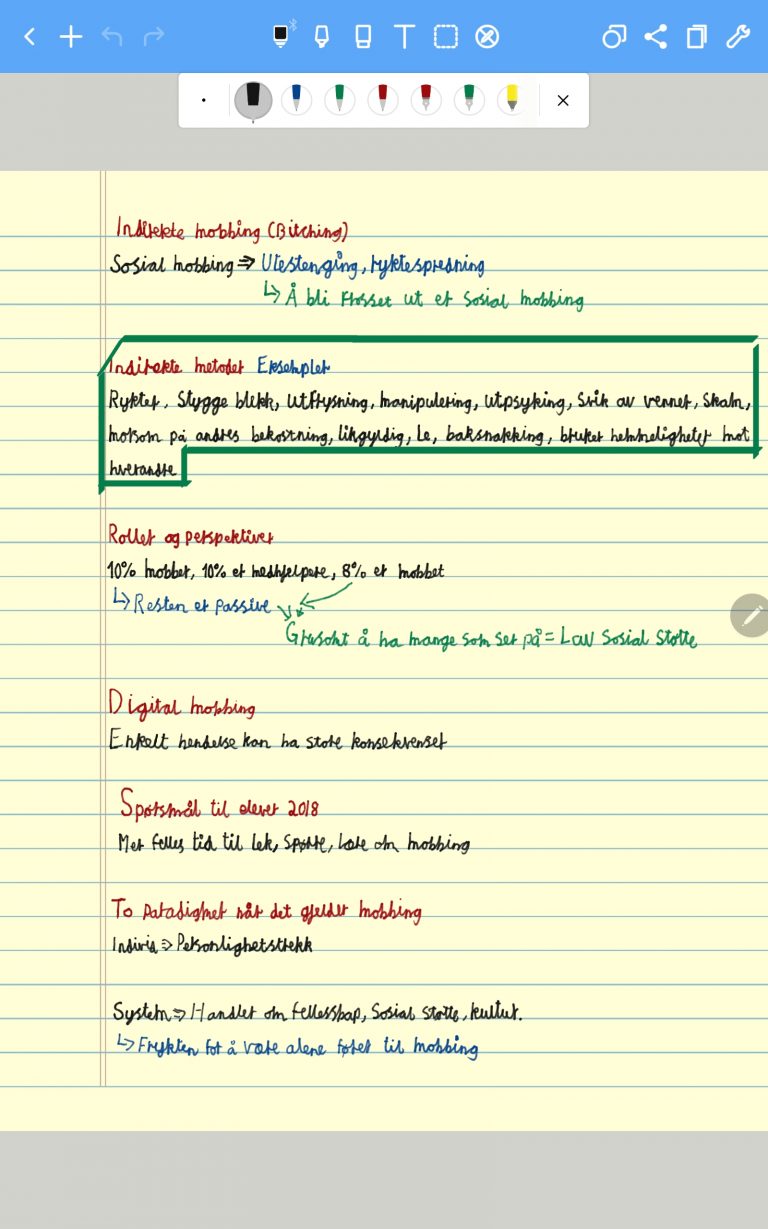 Indirekte mobbing (Bitching)
Sosial mobbing => Utestenging, ryktespredning
↳ Å bli frosset ut er sosial mobbing
Indirekte metoder Eksempler
Rykter, Stygge blikk, utfrysning, manipulering, utpsyking, Svik av venner, Skam,
morsom på andres bekostning, likgyldig, le, baksnakking, bruker hemmeligheter mot
hverandre
Roller og perspektiver
10% mobber, 10% er medhjelpere, 8% er mobbet
↳ Resten er passive
Grusomt å ha mange som ser på = Lav sosial støtte
Digital mobbing
Enkelt hendelse kan ha store konsekvenser
Spørsmål til elever 2018
Mer felles tid til lek, spørre, lære om mobbing
To paradigmer når det gjelder mobbing
Individ => Personlighetstrekk
System => Handler om fellesskap, Sosial støtte, kultur.
↳ Frykten for å være alene fører til mobbing